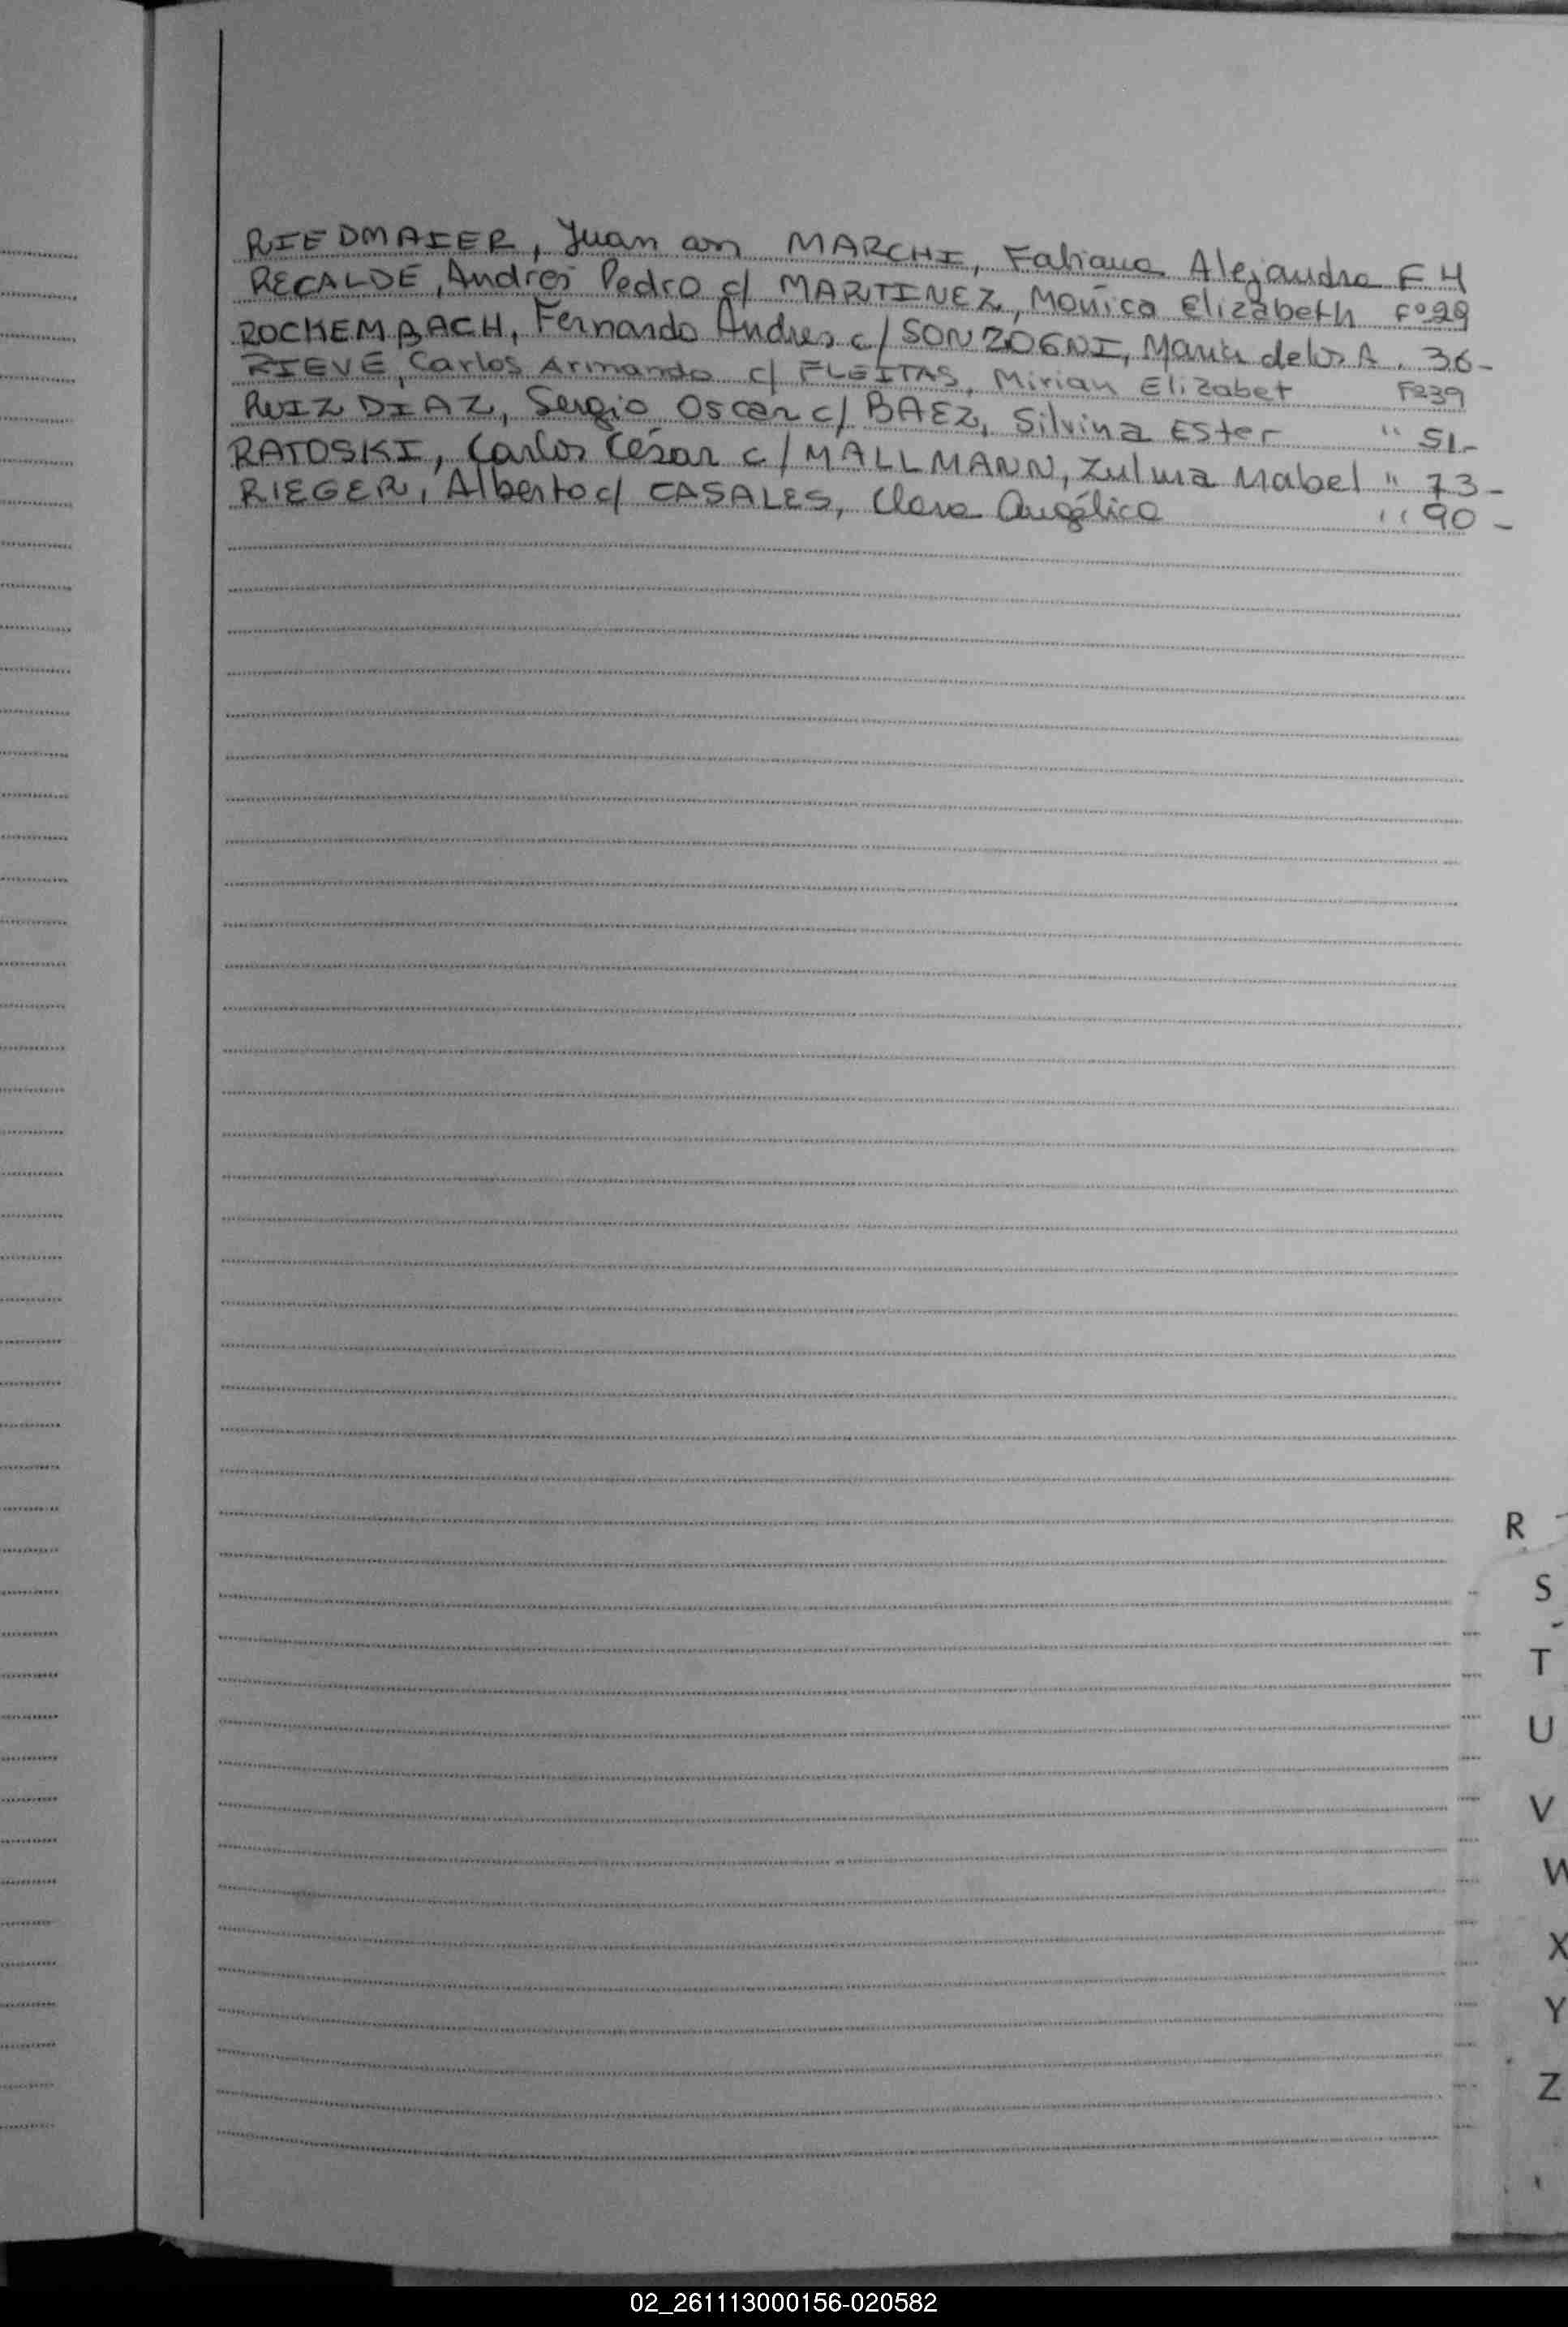 RIEDMAIER, Juan con MARCHI, Fabiana Alejandra F 4
RECALDE, Andres Pedro c/ MARTINEZ, Mónica Elizabeth Fº 29
ROCKEMBACH, Fernando Andres c/ SONZOGNI, María de los A. 36-
RIEVE, Carlos Armando c/ FLEITAS, Mirian Elizabet Fº39
RUIZ DIAZ, Sergio Oscar c/ BAEZ, Silvina Ester " 51-
RATOSKI, Carlos César c/ MALLMANN, Zulma Mabel " 73-
RIEGER, Alberto c/ CASALES, Clara Angélica " 90-
R
S
T
U
V
W
X
Y
Z
02_261113000156-020582